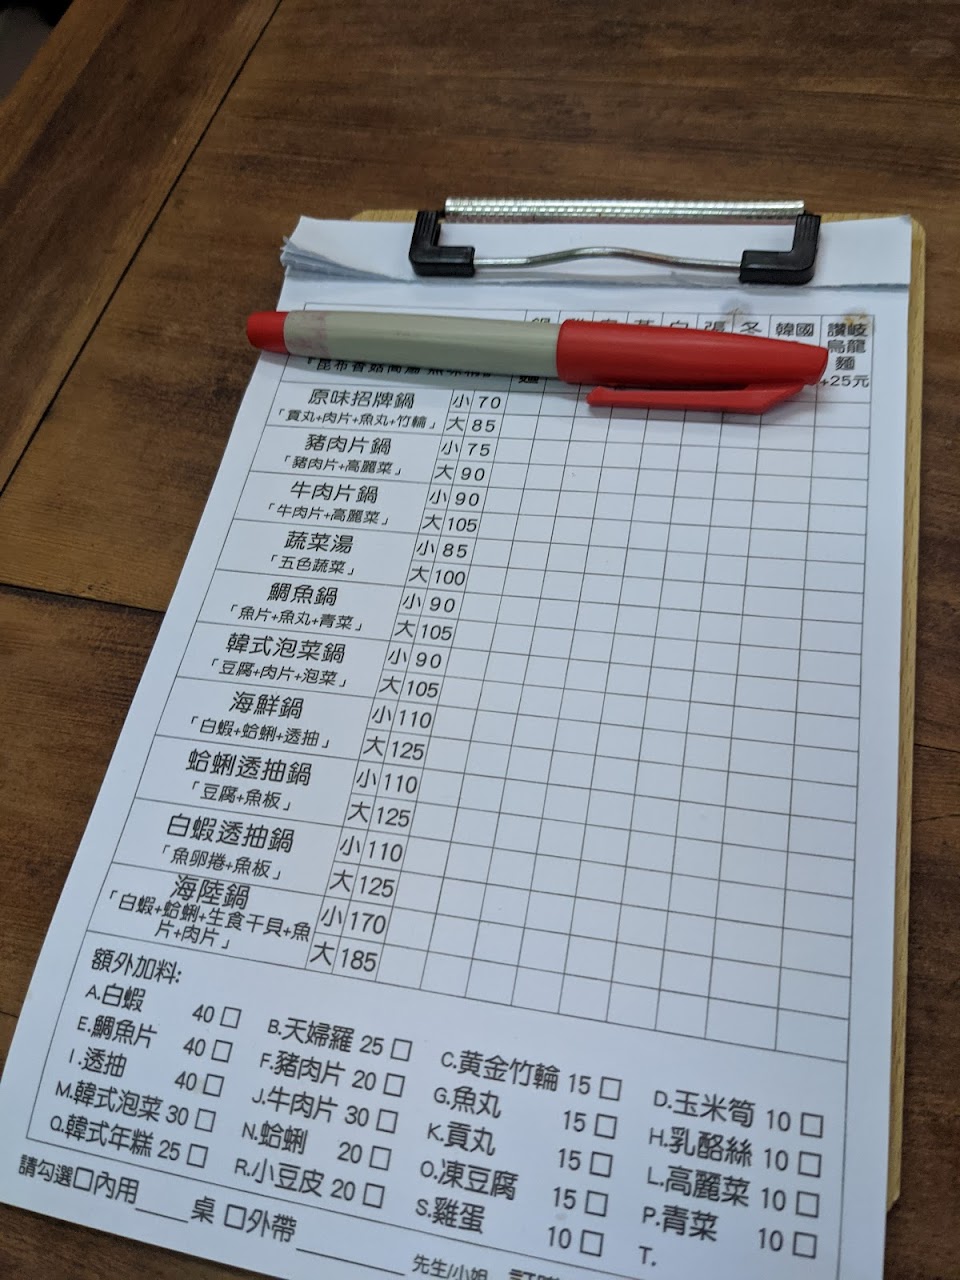 韓國
讚岐
烏龍
麵
+25元
原味招牌鍋
「貢丸+肉片+魚丸+竹輪」
小 70
大 85
豬肉片鍋
「豬肉片+高麗菜」
小 75
大 90
牛肉片鍋
「牛肉片+高麗菜」
小 90
大 105
蔬菜湯
「五色蔬菜」
小 85
大 100
鯛魚鍋
「魚片+魚丸+青菜」
小 90
大 105
韓式泡菜鍋
「豆腐+肉片+泡菜」
小 90
大 105
海鮮鍋
「白蝦+蛤蜊+透抽」
小 110
大 125
蛤蜊透抽鍋
「豆腐+魚板」
小 110
大 125
白蝦透抽鍋
「魚卵捲+魚板」
小 110
大 125
海陸鍋
「白蝦+蛤蜊+生食干貝+魚
片+肉片」
小 170
大 185
額外加料:
A.白蝦 40 □ B.天婦羅 25 □ C.黄金竹輪 15 □ D.玉米筍 10 □
E.鯛魚片 40 □ F.豬肉片 20 □ G.魚丸 15 □ H.乳酪絲 10 □
I.透抽 40 □ J.牛肉片 30 □ K.貢丸 15 □ L.高麗菜 10 □
M.韓式泡菜 30 □ N.蛤蜊 20 □ O.凍豆腐 15 □ P.青菜 10 □
Q.韓式年糕 25 □ R.小豆皮 20 □ S.雞蛋 10 □ T.
請勾選□內用____桌 □外帶________先生/小姐